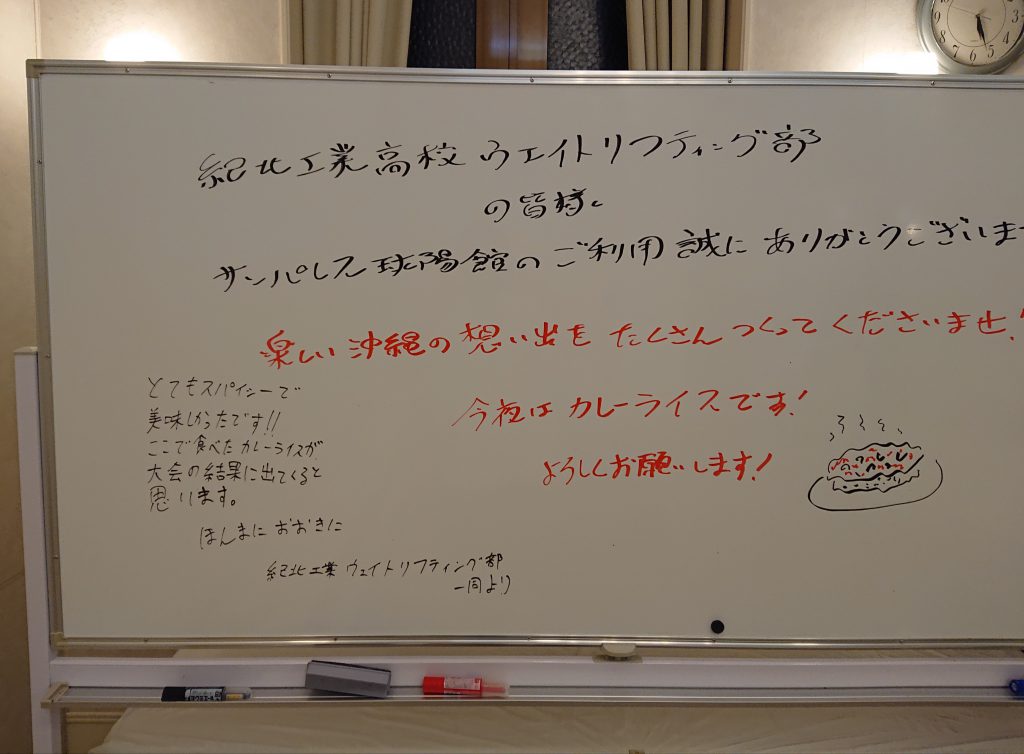 紀北工業高校 ウエイトリフティング部
の皆様、
サンパレス球陽館のご利用 誠に ありがとうございま
楽しい 沖縄の 想い出を たくさん つくって くださいませ!
今夜は カレーライスです!
ようしくお願いします!
とてもスパイシーで
美味しかったです!!
ここで食べたカレーライスが
大会の結果に出てくると
思います。
ほんまに おおきに
紀北工業 ウェイトリフティング部
一同より
5
6
7
8
9